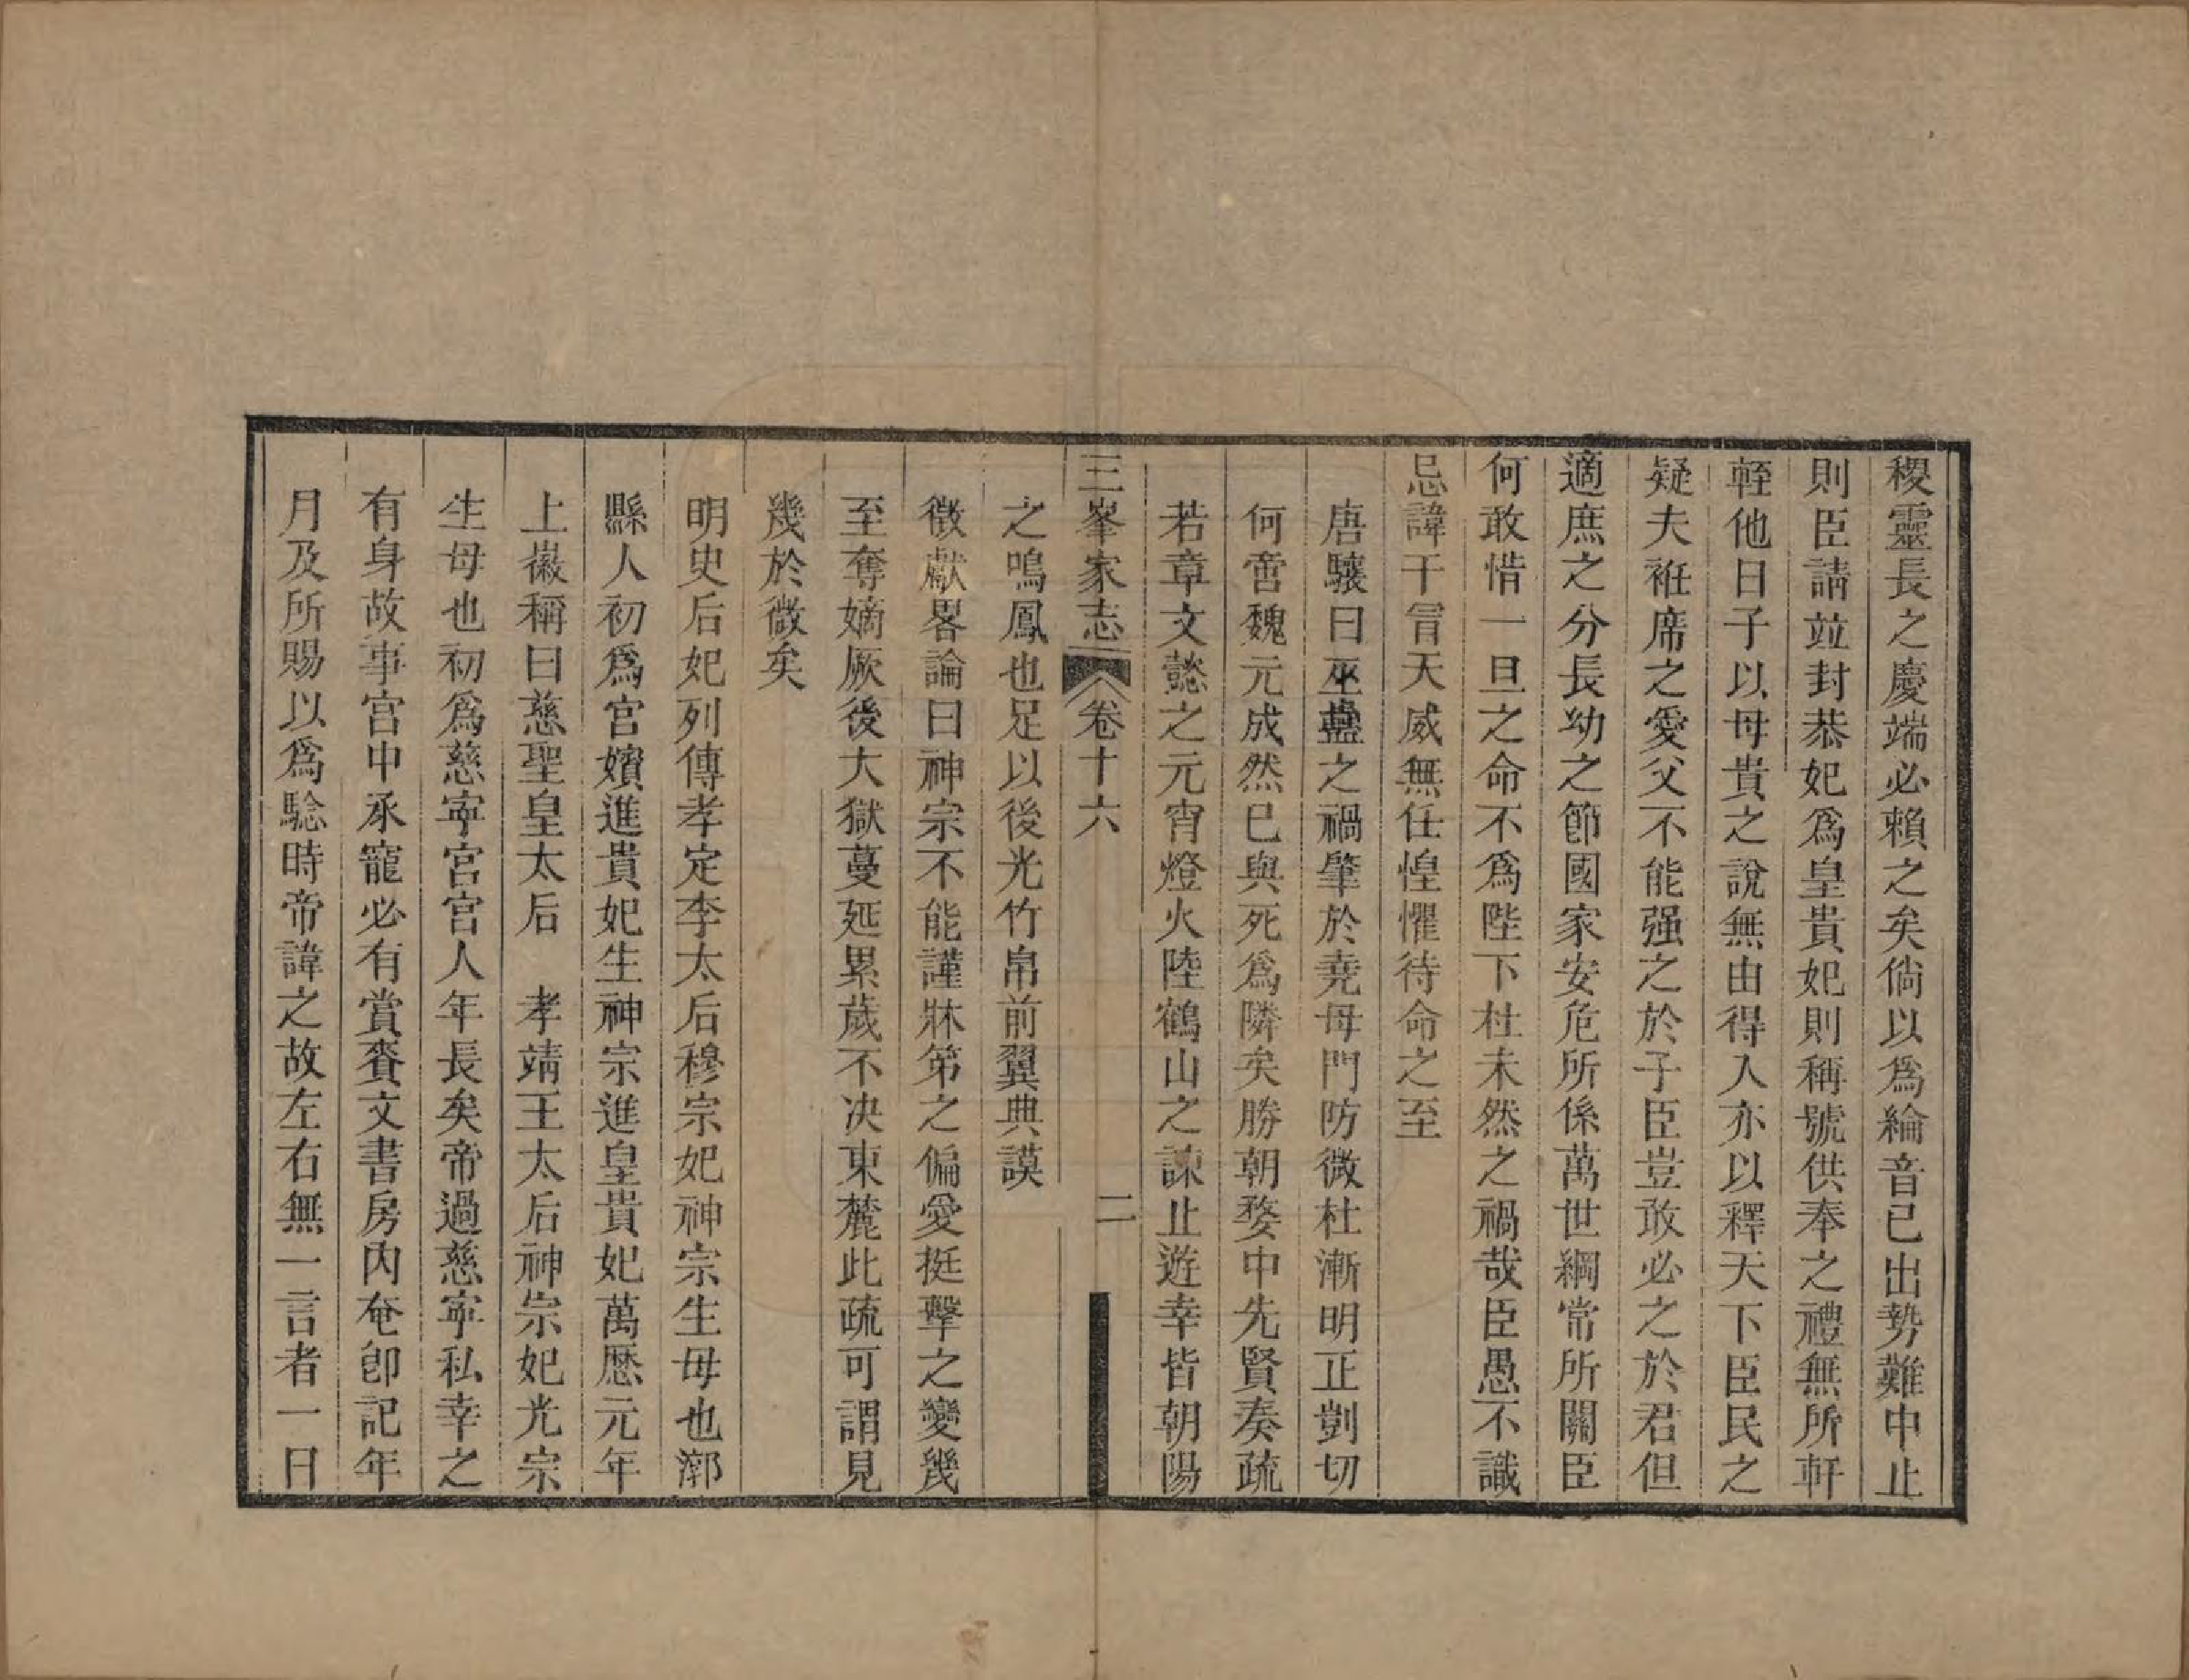 稷靈長之慶端必賴之矣倘以爲綸音已出勢難中止
則臣請並封恭妃爲皇貴妃則稱號供奉之禮無所軒
輊他日子以母貴之說無由得入亦以釋天下臣民之
疑夫袵席之愛父不能强之於子臣豈敢必之於君但
適庶之分長幼之節國家安危所係萬世綱常所關臣
何敢惜一旦之命不爲陛下杜未然之禍哉臣愚不識
忌諱干冒天威無任惶懼待命之至
唐驤曰巫蠱之禍肇於堯母門防微杜漸明正剴切
何啻魏元成然已與死爲隣矣勝朝婺中先賢奏疏
若章文懿之元宵燈火陸鶴山之諫止遊幸皆朝陽
三峯家志 卷十六 二
之鳴鳳也足以後光竹帛前翼典謨
徵獻畧論曰神宗不能謹牀第之偏愛挺擊之變幾
至奪嫡厥後大獄蔓延累歲不决東麓此疏可謂見
幾於微矣
明史后妃列傳孝定李太后穆宗妃神宗生母也漷
縣人初爲宮嬪進貴妃生神宗進皇貴妃萬歷元年
上嶶稱曰慈聖皇太后　孝靖王太后神宗妃光宗
生母也初爲慈寧宮宮人年長矣帝過慈寧私幸之
有身故事宮中承寵必有賞賚文書房內奄卽記年
月及所賜以爲騐時帝諱之故左右無一言者一日